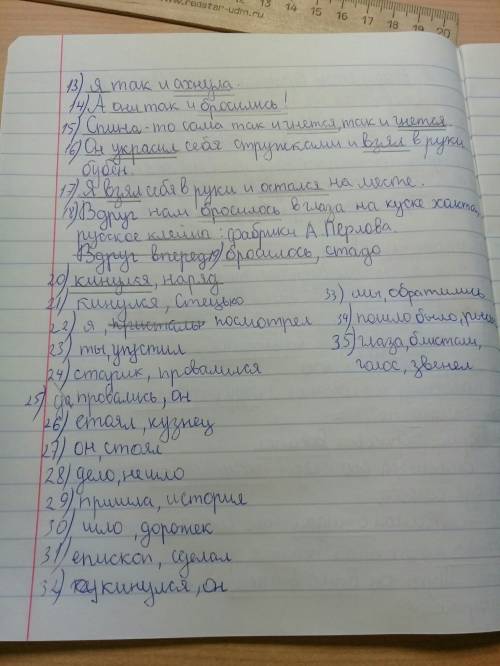 www.rodstar-udm.ru
13 14 15 16 17 18 19 20
13) Я так и ахнула.
14) А они так и бросились!
15) Спина-то сама так и гнется, так и гнется.
16) Он украсил себя стружками и взял в руки
бубен.
17) Я взял себя в руки и остался на месте.
18) Вдруг нам бросилось в глаза на куске холста,
русское клеймо: фабрики А. Перлова.
Вдруг вперед 19) бросилось, стадо
20) кинулся, наряд
21) кинулся, Стецько
22) я, пристально посмотрел
23) ты, упустил
24) старик, провалился
25) да провались, он
26) стоял, кузнец
27) он, стоял
28) дело, не шло
29) пришла, история
30) шло, дорожек
31) епископ, сделал
32) кинулся, он
33) мы, обратились
34) пошло было,
35) глаза, блистали,
голос, звенел